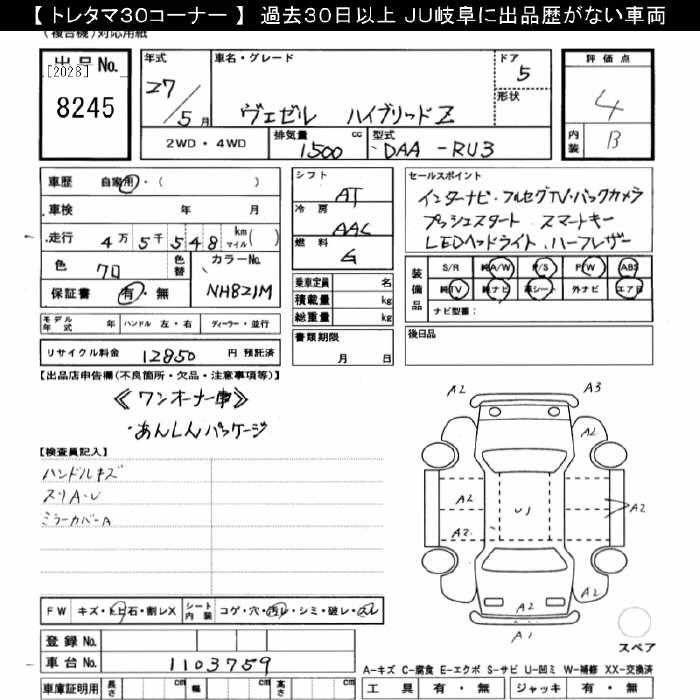 【トレタマ30コーナー】 過去30日以上 JU岐阜に出品歴がない車両
(複合機)対応用紙
出品No.
[2028]
8245
年式 27/5月
車名・グレード
ヴェゼル ハイブリッドZ
ドア 5
形状
評価点 4
内装 B
2WD・4WD
排気量 1500 cc
型式 DAA-RU3
車歴 自家用・( )
車検 年 月
走行 4万5千548 km マイル ( )
色 クロ 色替
カラーNo. NH821M
保証書 有・無
シフト AT
冷房 AAC
燃料 G
乗車定員 名
積載量 kg
総重量 kg
書類期限
月 日
セールスポイント
インターナビ・フルセグTV・バックカメラ
プッシュスタート スマートキー
LEDヘッドライト、ハーフレザー
装備品
S/R 純A/W P/S P/W ABS
純TV 純ナビ 革シート 外ナビ エアB
ナビ型番:
後日品
モデル年式 年 ハンドル 左・右 ディーラー・並行
リサイクル料金 12850 円 預託済
【出品店申告欄(不良箇所・欠品・注意事項等)】
《ワンオーナー車》
・あんしんパッケージ
【検査員記入】
ハンドルキズ
スリA・U
ミラーカバーA
A2 A3
A2 A2
A2 A2 A2
U1
A2 A2
A2 A2
A1
スペア
FW キズ・トビ石・割レX シート内装 コゲ・穴・汚レ・シミ・破レ・スレ
登録No.
車台No. 1103759
車庫証明用 長さ cm 幅 cm 高さ cm
A-キズ C-腐食 E-エクボ S-サビ U-凹ミ W-補修 XX-交換済
工具 有・無 ジャッキ 有・無